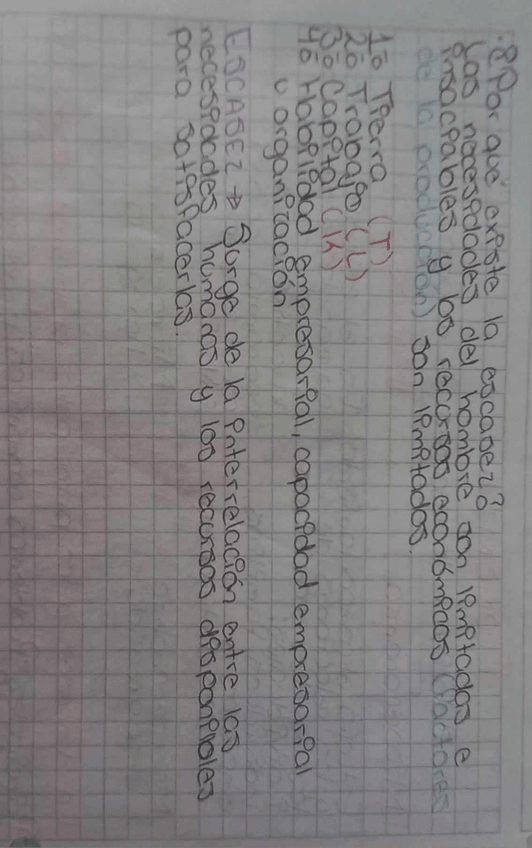 ·¿Por qué existe la escasez?
Las necesidades del hombre son limitadas e
insaciables y los recursos económicos (factores
de la producción) son limitados.
1º Tierra (T)
2º Trabajo (L)
3º Capital (K)
4º Habilidad empresarial, capacidad empresarial
u organización
ESCASEZ → Surge de la interrelación entre las
necesidades humanas y los recursos disponibles
para satisfacerlas.